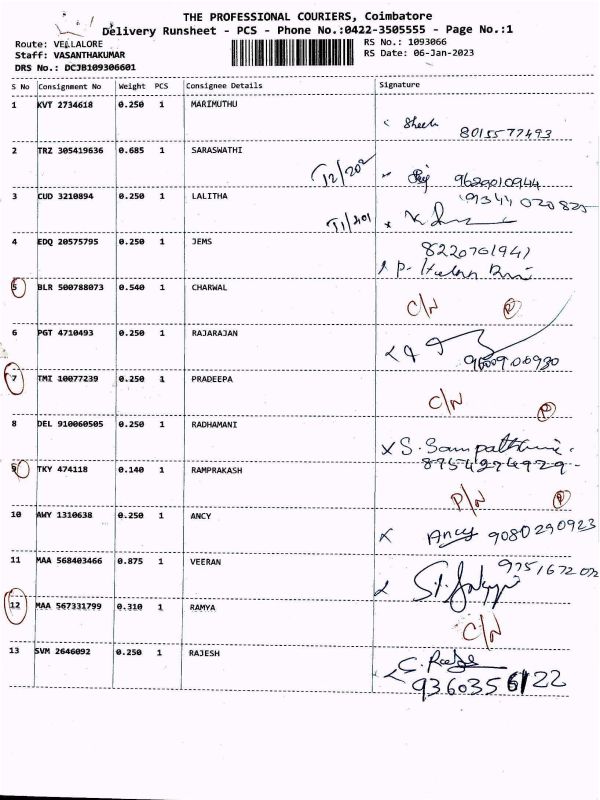 THE PROFESSIONAL COURIERS, Coimbatore
Delivery Runsheet - PCS - Phone No.:0422-3505555 - Page No.:1
Route: VELLALORE
RS No.: 1093066
Staff: VASANTHAKUMAR
RS Date: 06-Jan-2023
DRS No.: DCJB109306601
S No Consignment No Weight PCS Consignee Details Signature
1 KVT 2734618 0.250 1 MARIMUTHU
8015577493
2 TRZ 305419636 0.685 1 SARASWATHI
T2/202
9629010944
3 CUD 3210894 0.250 1 LALITHA
T1/401
4 EDQ 20575795 0.250 1 JEMS
8220701941
5 BLR 500788073 0.540 1 CHARWAL
C/N R
6 PGT 4710493 0.250 1 RAJARAJAN
7 TMI 10077239 0.250 1 PRADEEPA
C/N R
8 DEL 910060505 0.250 1 RADHAMANI
9 TKY 474118 0.140 1 RAMPRAKASH
P/N
10 AWY 1310638 0.250 1 ANCY
Ancy 9080290923
11 MAA 568403466 0.875 1 VEERAN
12 MAA 567331799 0.310 1 RAMYA
C/N
13 SVM 2646092 0.250 1 RAJESH
9360356122